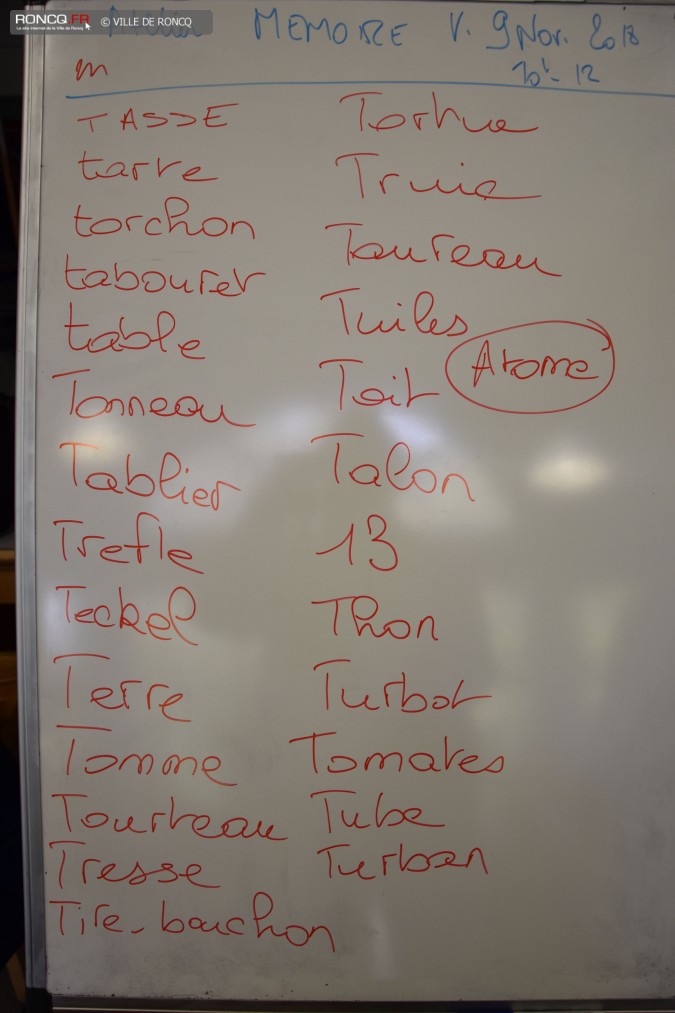 RONCQ.FR © VILLE DE RONCQ
Le site internet de la Ville de Roncq
MEMOIRE V. 9 Nov. 2018
10h-12
m
TASSE
tarte
torchon
tabouret
table
Tonneau
Tablier
Trefle
Teckel
Terre
Tomme
Tourteau
Tresse
Tire-bouchon
Tortue
Truie
Taureau
Tuiles
Toit
Atome
Talon
13
Thon
Turbot
Tomates
Tube
Turban